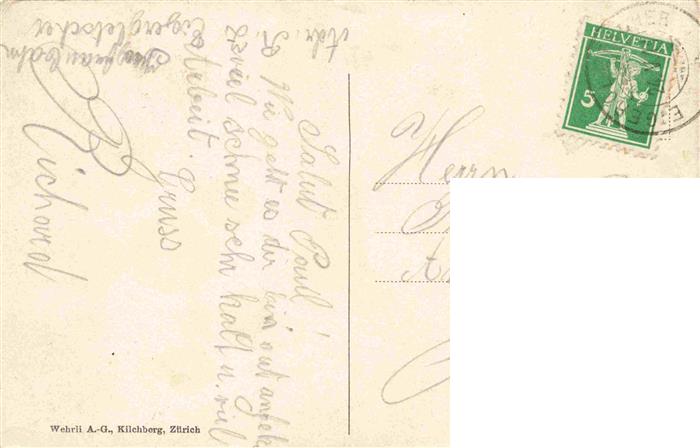 Adr. R. Z.
Eigergletscher
Jungfraubahn
Salut Paul!
Wie geht es dir bin gut angek.
viel schnee sehr kalt u. viel
arbeit.
Gruss
Richard
Herrn
HELVETIA
5
EIGER
Wehrli A.-G., Kilchberg, Zürich